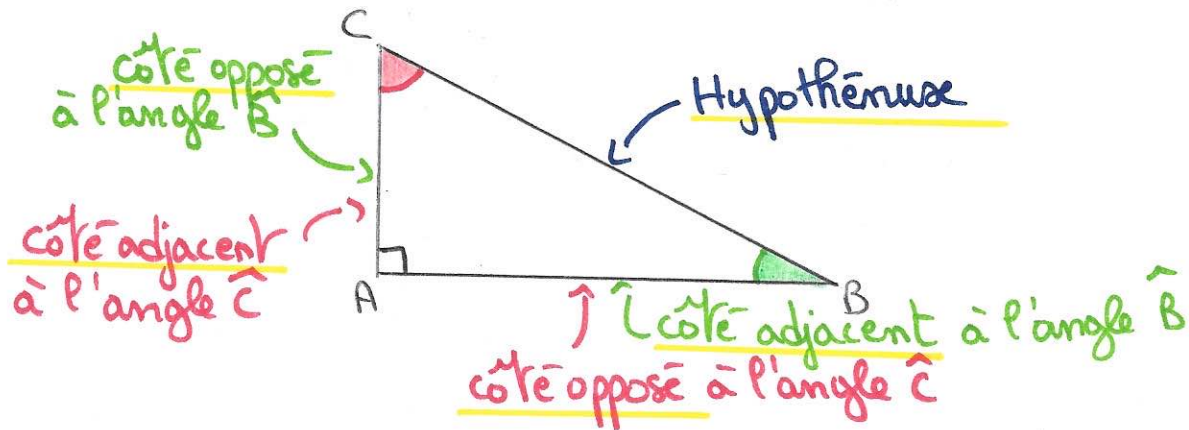 C
côté opposé
à l'angle B̂
Hypothénuse
côté adjacent
à l'angle Ĉ
A
B
côté adjacent à l'angle B̂
côté opposé à l'angle Ĉ